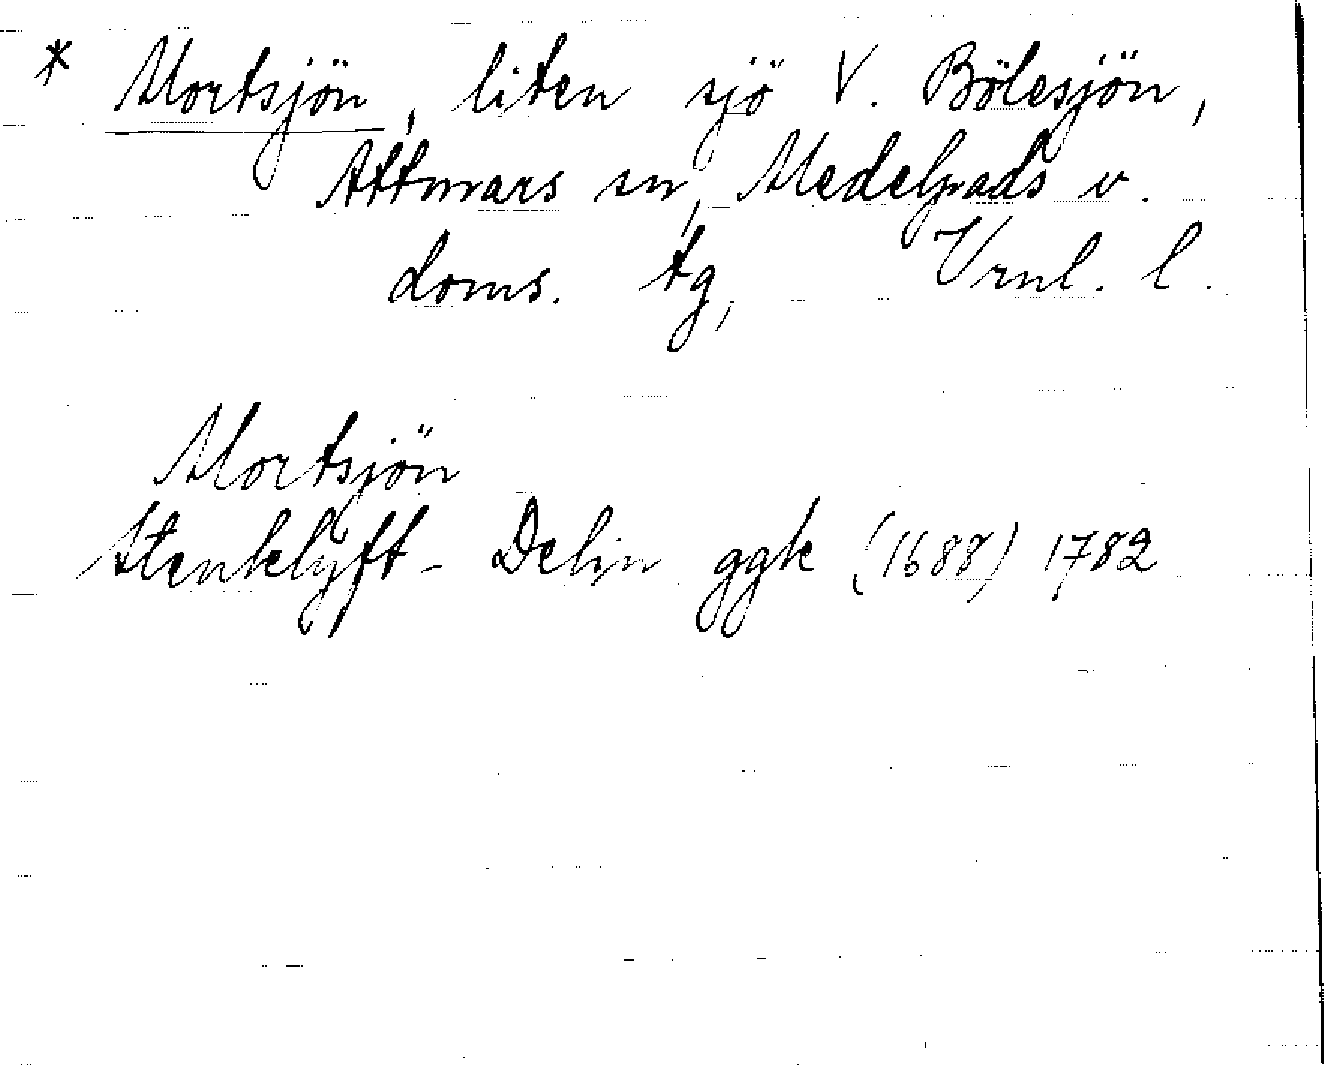 * Mortsjön, liten sjö V. Bölesjön,
Attmars sn, Medelpads v.
doms. tg, Vrnl. l.
Mortsjön
Stenklyft- Delin ggk (1688) 1782